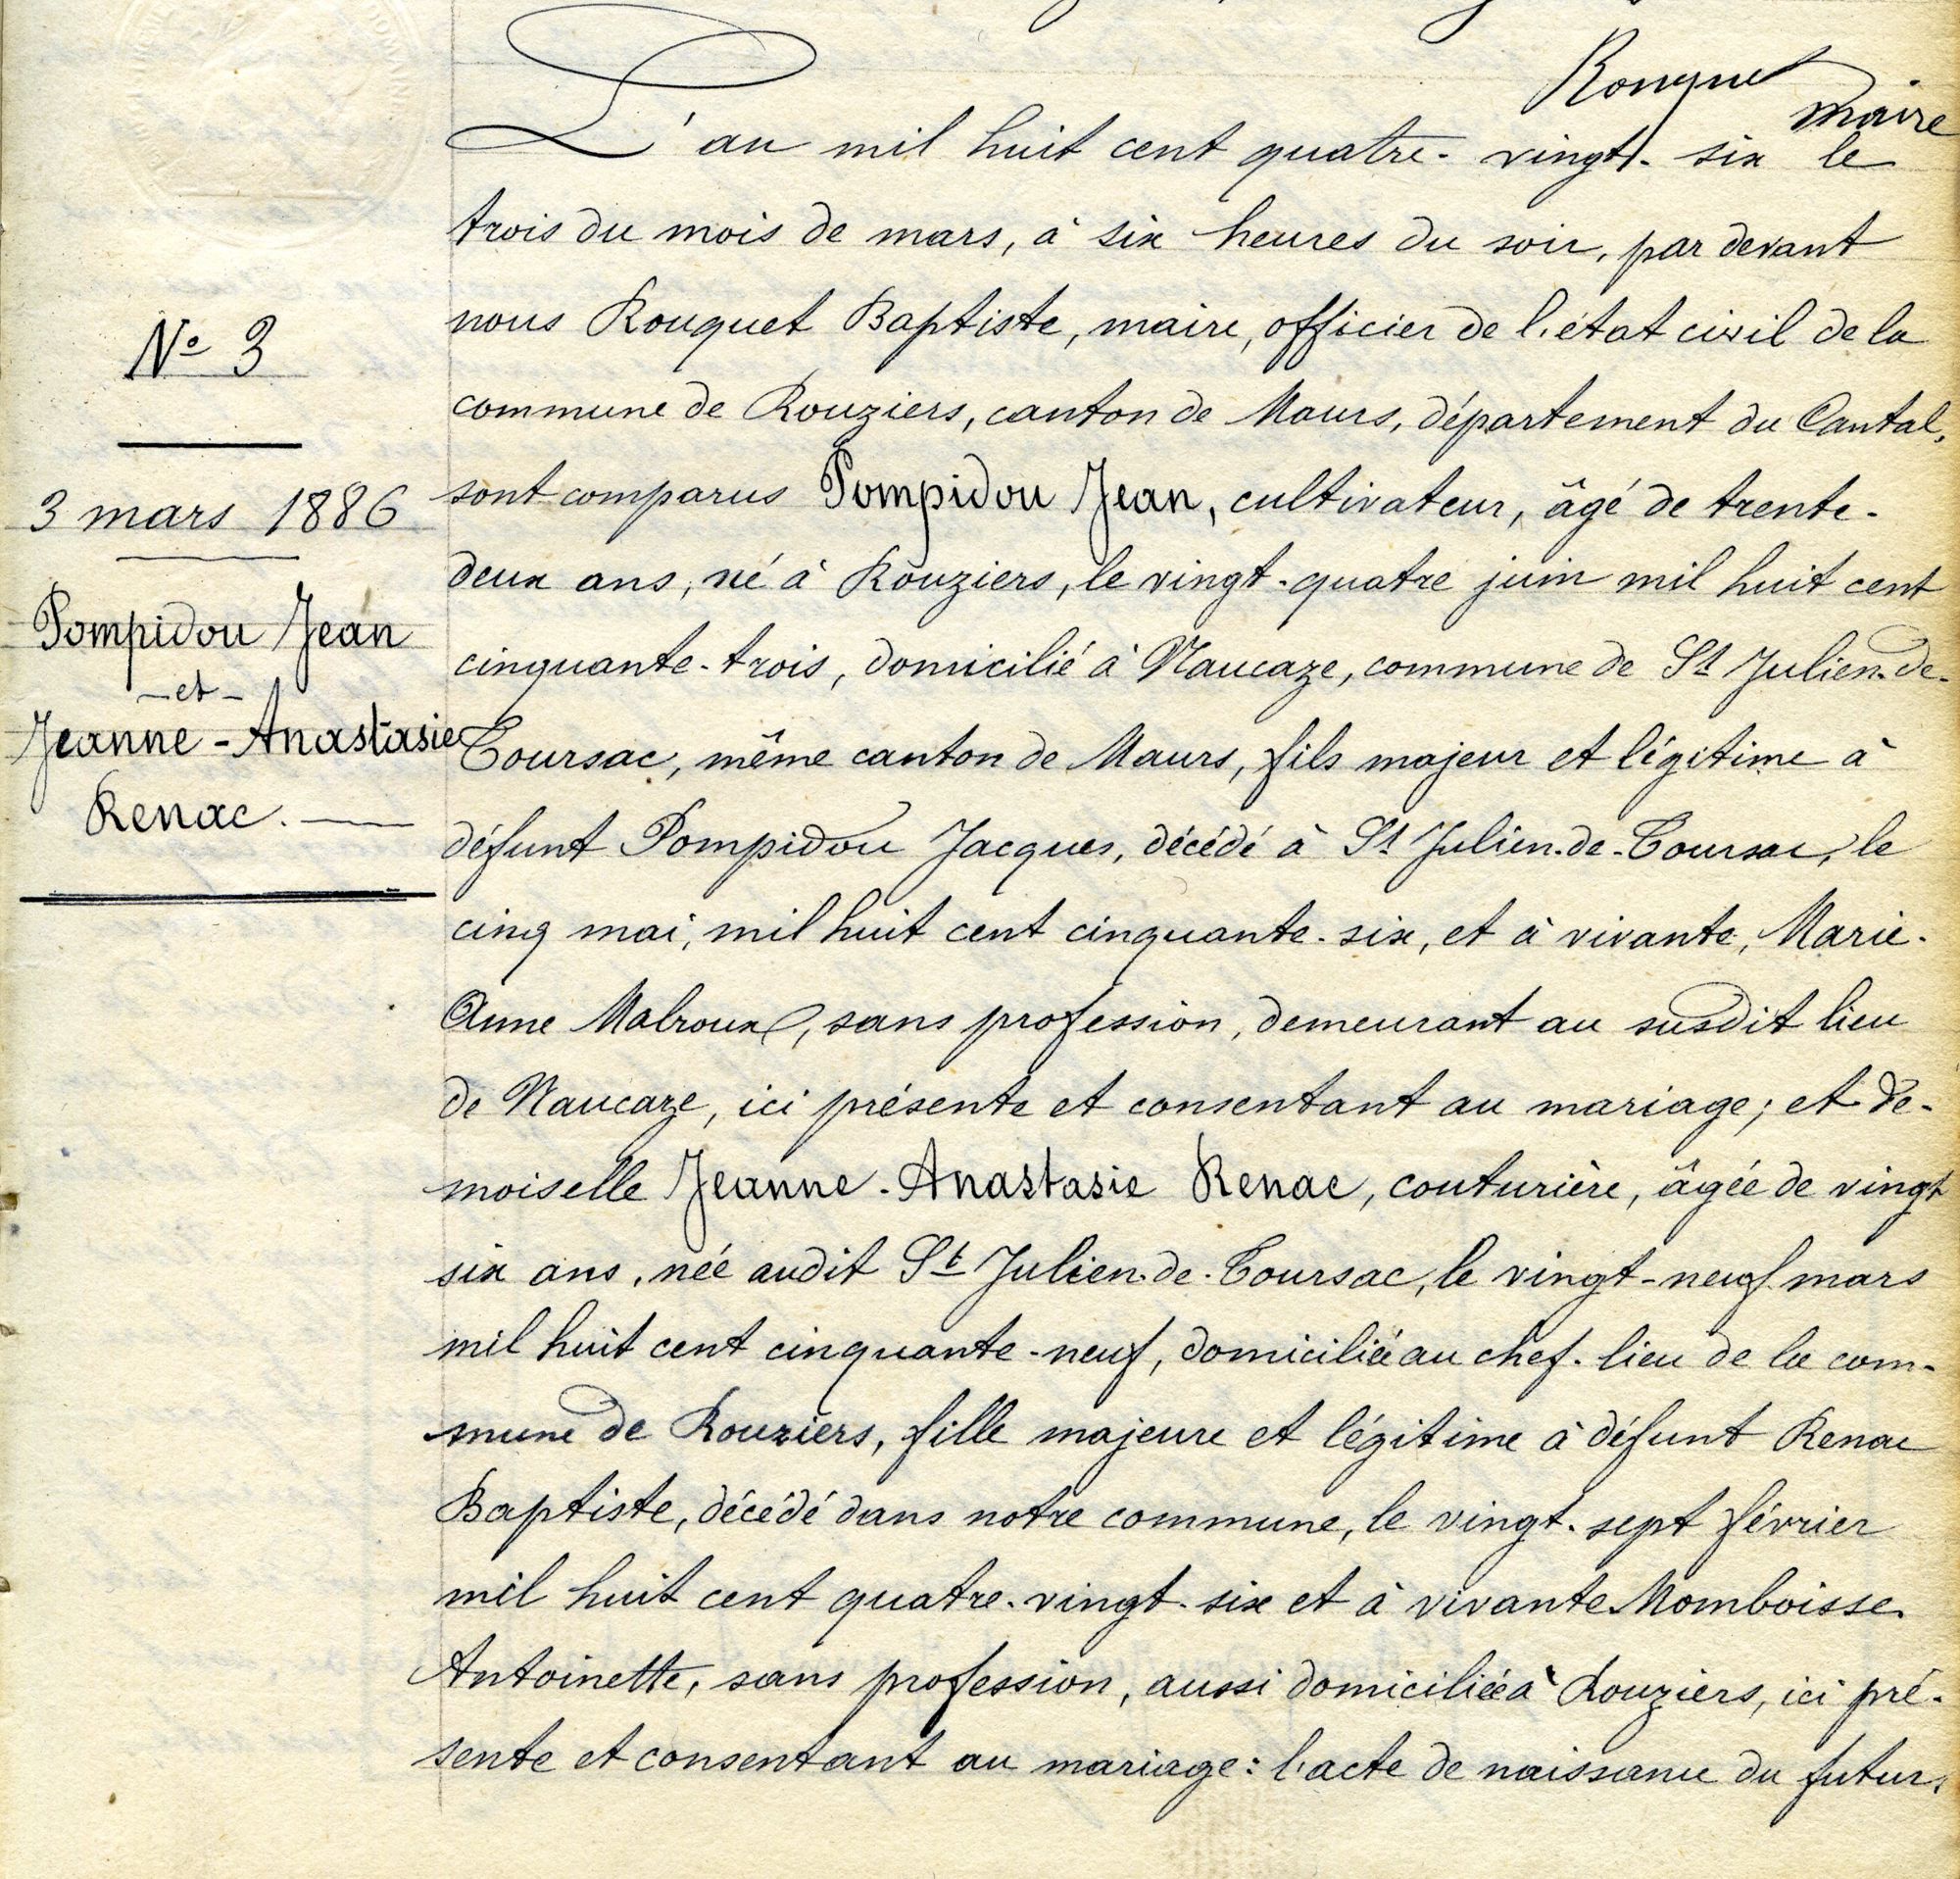 Rouquet
maire
L'an mil huit cent quatre-vingt-six le
trois du mois de mars, à six heures du soir, par devant
nous Rouquet Baptiste, maire, officier de l'état civil de la
commune de Rouziers, canton de Maurs, département du Cantal,
sont comparus Pompidou Jean, cultivateur, âgé de trente-
deux ans, né à Rouziers, le vingt-quatre juin mil huit cent
cinquante-trois, domicilié à Naucaze, commune de St Julien-de-
Toursac, même canton de Maurs, fils majeur et légitime à
défunt Pompidou Jacques, décédé à St Julien-de-Toursac, le
cinq mai, mil huit cent cinquante-six, et à vivante, Marie-
Anne Malroux, sans profession, demeurant au susdit lieu
de Naucaze, ici présente et consentant au mariage; et de-
moiselle Jeanne-Anastasie Renac, couturière, âgée de vingt
six ans, née audit St Julien-de-Toursac, le vingt-neuf mars
mil huit cent cinquante-neuf, domiciliée au chef-lieu de la com-
mune de Rouziers, fille majeure et légitime à défunt Renac
Baptiste, décédé dans notre commune, le vingt-sept février
mil huit cent quatre-vingt-six et à vivante Momboisse
Antoinette, sans profession, aussi domiciliée à Rouziers, ici pré-
sente et consentant au mariage: l'acte de naissance du futur,
No 3
3 mars 1886
Pompidou Jean
-et-
Jeanne-Anastasie
Renac.